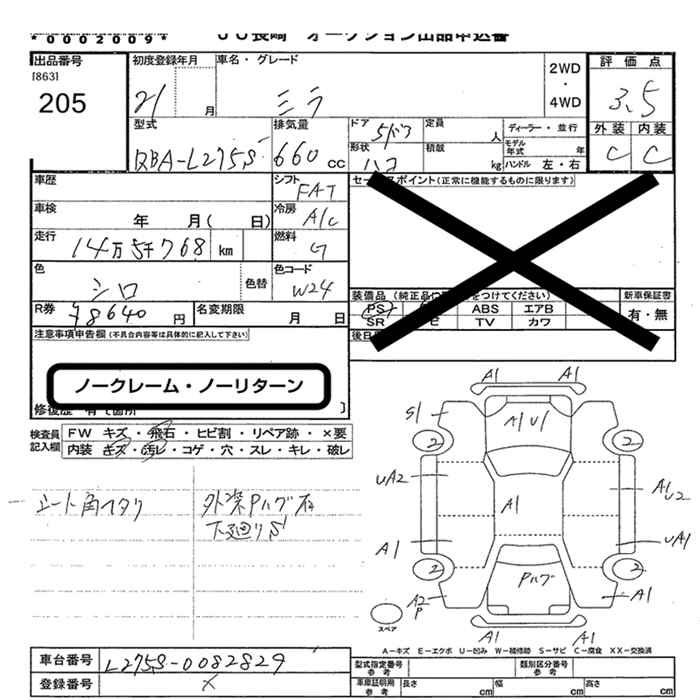 *0002009*
JU長崎 オークション出品申込書
出品番号
[863]
205
初度登録年月
21 月
車名・グレード
ミラ
2WD
・
4WD
評価点
3.5
外装 内装
C C
型式
RBA-L275S
排気量
660 cc
ドア
5ドア
定員
人
形状
ハコ
積載
kg
ディーラー・並行
モデル年式 年
ハンドル 左・右
車歴
シフト
FAT
車検
年 月( 日)
冷房
A/C
走行
14万5千768 km
燃料
G
色
シロ
色替
色コード
W24
R券
¥8640 円
名変期限
月 日
セールスポイント(正常に機能するものに限ります)
装備品
PS
ABS
エアB
SR
TV
カワ
新車保証書
有・無
注意事項申告欄(不具合内容等は具体的に記入して下さい)
ノークレーム・ノーリターン
検査員
記入欄
FW キズ・飛石・ヒビ割・リペア跡・×要
内装 キズ・汚レ・コゲ・穴・スレ・キレ・破レ
外装Pハゲ有
下廻りS
A1 A1
S1
A1 U1
2 2
UA2
A1
A1
U2
A1
UA1
2 2
Pハゲ
A2
P
A1
A1 A1
スペア
A-キズ E-エクボ U-凹み W-補修跡 S-サビ C-腐食 XX-交換済
車台番号
L275S-0082829
登録番号
×
型式指定番号
参考
類別区分番号
参考
車庫証明用
参考
長さ cm
幅 cm
高さ cm